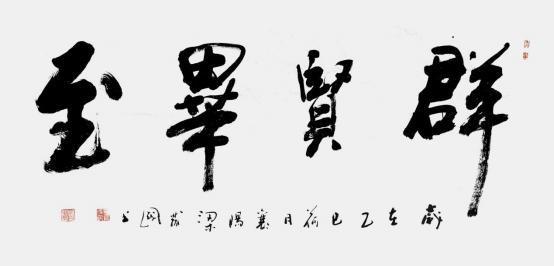 群賢畢至
歲在乙巳荷月襄陽梁